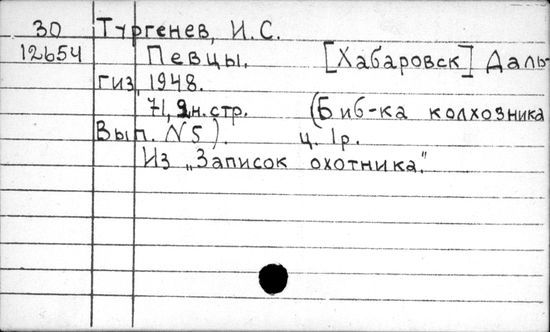 30 Тургенев, И.С.
12654 Певцы. [Хабаровск] Даль-
гиз, 1948.
71, 2н.стр. (Биб-ка колхозника
Вып. N5). ц. 1р.
Из „Записок охотника."